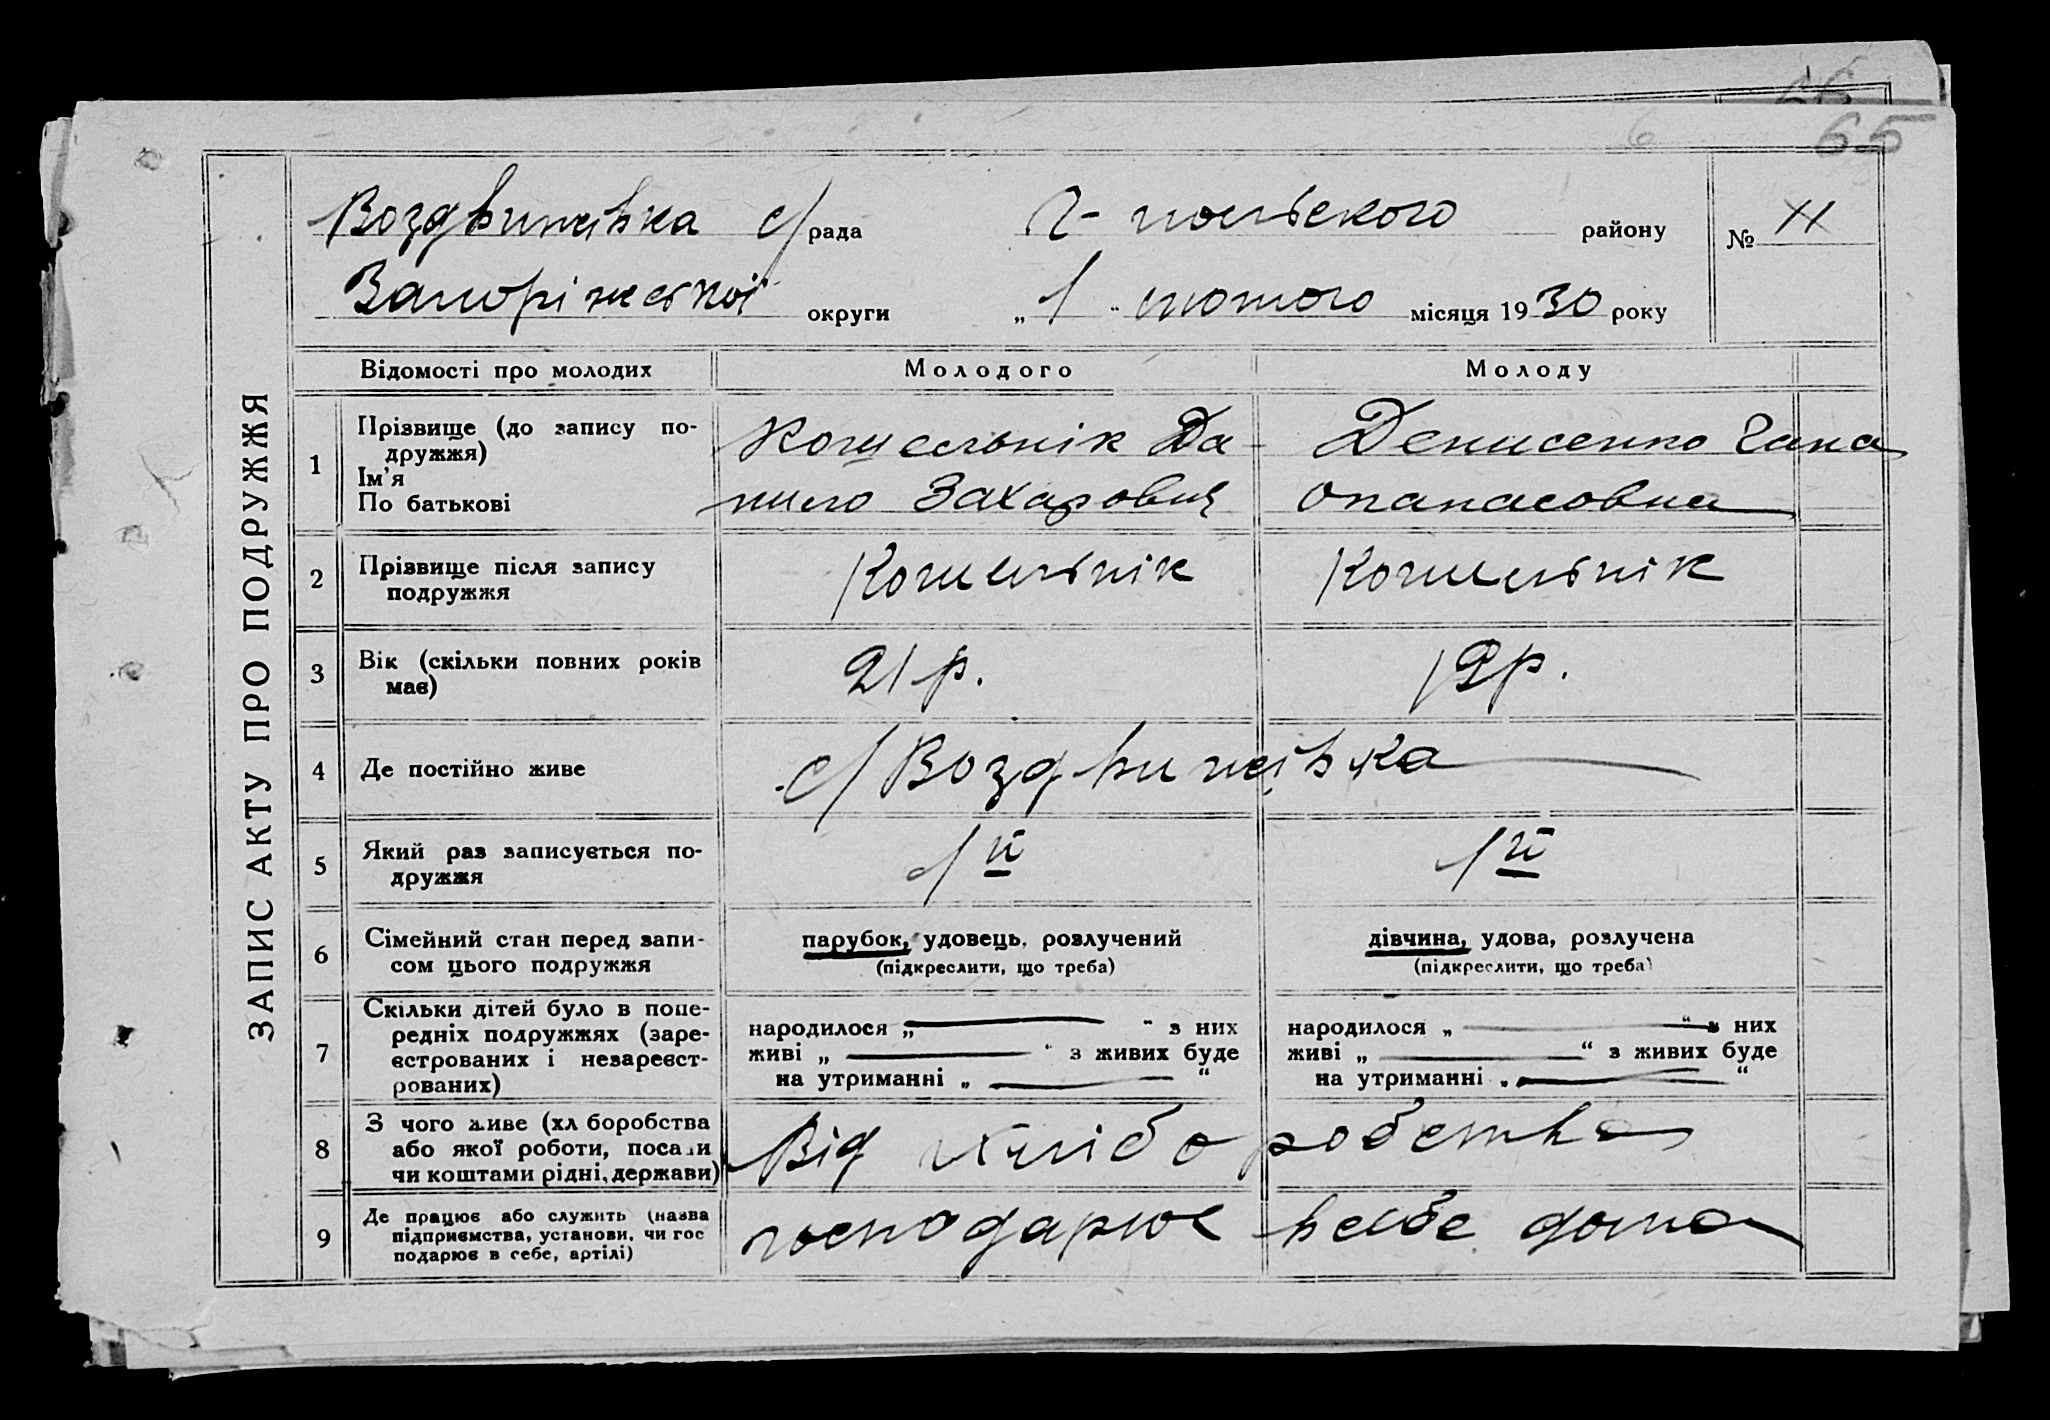 66
6
65
ЗАПИС АКТУ ПРО ПОДРУЖЖЯ
Воздвижівка с/рада Г-польского району № 11
Запоріжської округи „1" лютого місяця 1930 року
Відомості про молодих Молодого Молоду
1 Прізвище (до запису по-
дружжя)
Ім'я
По батькові
Кошельнік Да-
нило Захарович
Денисенко Гана
Опанасовна
2 Прізвище після запису
подружжя
Кошельнік Кошельнік
3 Вік (скільки повних років
має)
21 р. 19 р.
4 Де постійно живе с/Воздвижівка
5 Який раз записується по-
дружжя
1й 1й
6 Сімейний стан перед запи-
сом цього подружжя
парубок, удовець, розлучений
(підкреслити, що треба)
дівчина, удова, розлучена
(підкреслити, що треба)
7 Скільки дітей було в попе-
редніх подружжях (заре-
єстрованих і незареєст-
рованих)
народилося „ — " з них
живі „ — " з живих буде
на утриманні „ — "
народилося „ — " з них
живі „ — " з живих буде
на утриманні „ — "
8 З чого живе (хліборобства
або якої роботи, посади
чи коштами рідні, держави)
Від хліборобства
9 Де працює або служить (назва
підприємства, установи, чи гос
подарює в себе, артілі)
господарює в себе дома